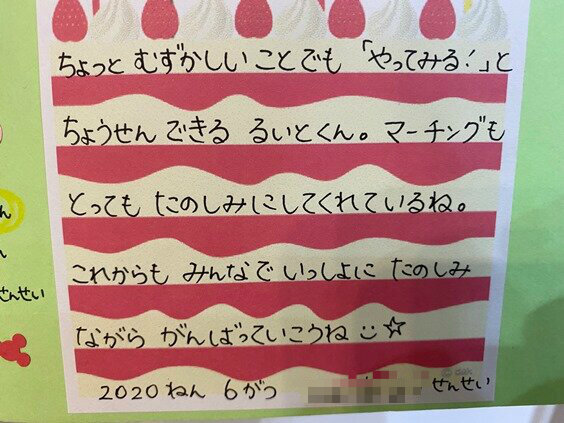 ちょっと むずかしい ことでも 「やってみる!」と
ちょうせん できる るいとくん。 マーチングも
とっても たのしみにしてくれているね。
これからも みんなで いっしょに たのしみ
ながら がんばっていこうね ☺☆
2020ねん 6がつ せんせい
ん
ん
せんせい